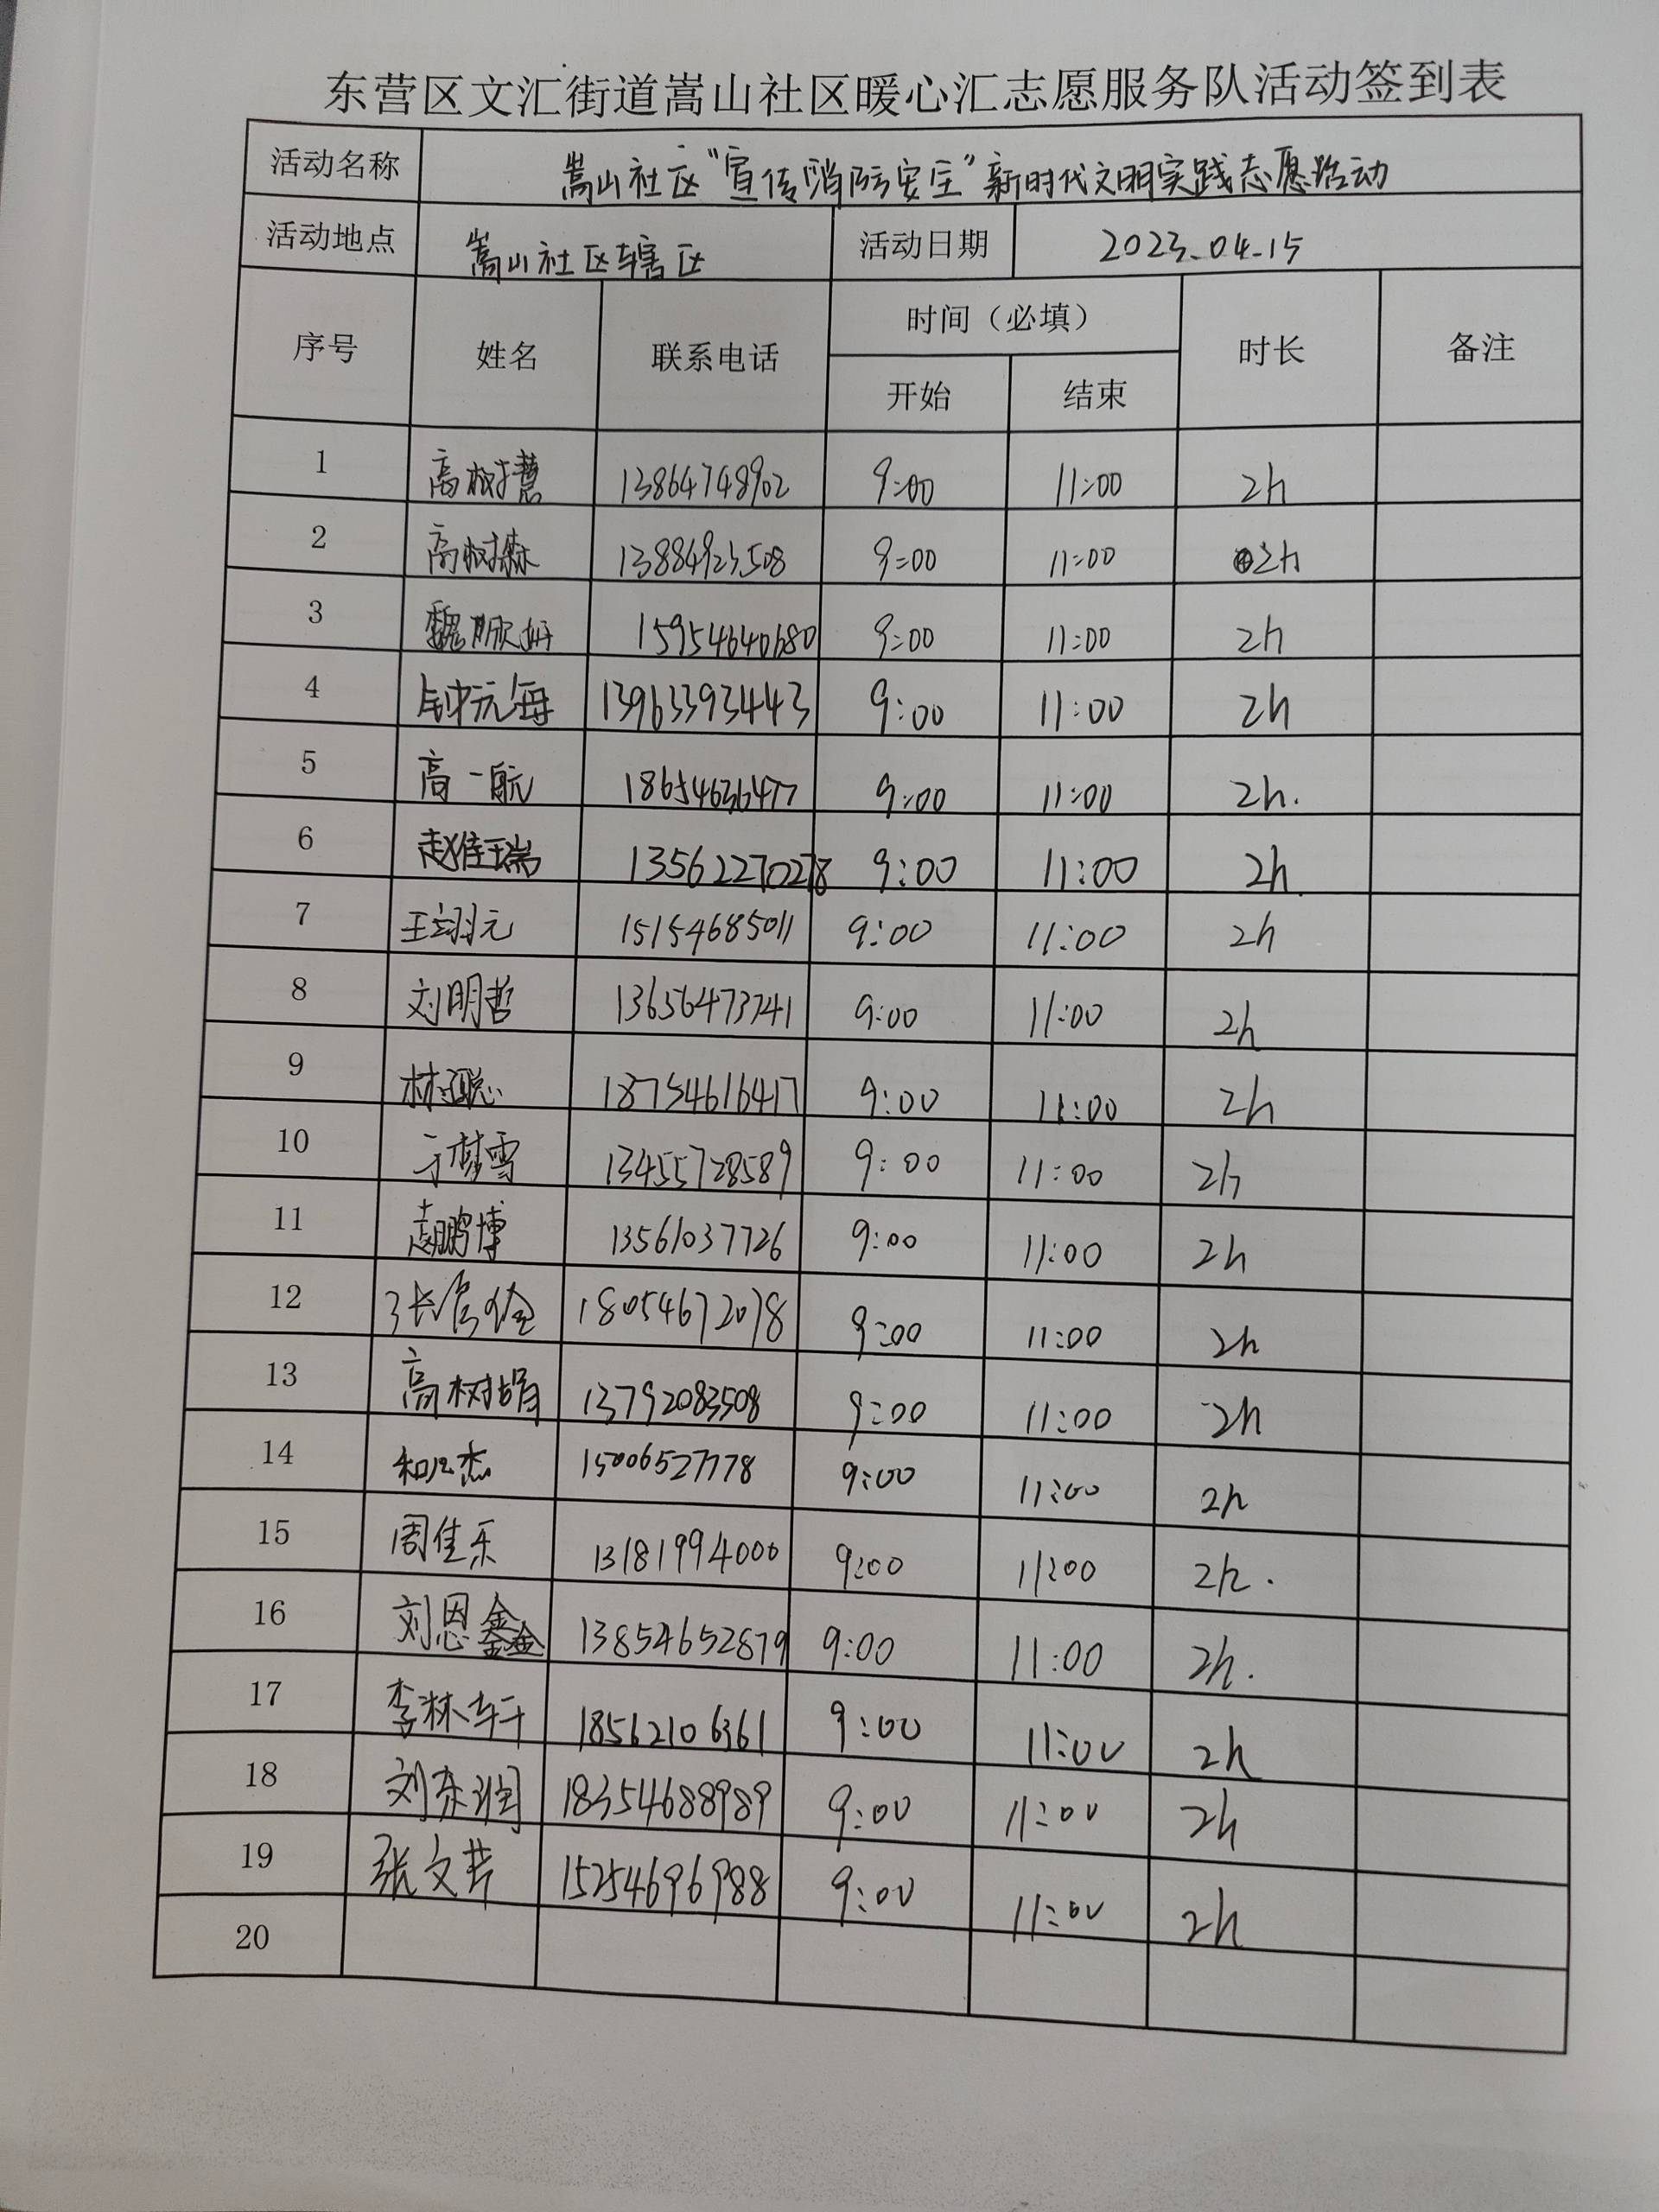 东营区文汇街道嵩山社区暖心汇志愿服务队活动签到表
活动名称 嵩山社区“宣传消防安全”新时代文明实践志愿活动
活动地点 嵩山社区辖区 活动日期 2023.04.15
序号 姓名 联系电话 时间（必填） 时长 备注
开始 结束
1 高树慧 13864748902 9:00 11:00 2h
2 高树森 13884923508 9:00 11:00 2h
3 魏欣妍 15954640680 9:00 11:00 2h
4 钟元海 13963393443 9:00 11:00 2h
5 高一航 18654636477 9:00 11:00 2h.
6 赵佳瑞 13562270278 9:00 11:00 2h
7 王翊元 15154685011 9:00 11:00 2h
8 刘明哲 13656473741 9:00 11:00 2h
9 林聪 18754616417 9:00 11:00 2h
10 于梦雪 13455728589 9:00 11:00 2h
11 赵鹏博 13561037726 9:00 11:00 2h
12 张 18054672078 9:00 11:00 2h
13 高树娟 13792083508 9:00 11:00 2h
14 杰 15006527778 9:00 11:00 2h
15 周佳乐 13181994000 9:00 11:00 2h.
16 刘恩鑫 13854652879 9:00 11:00 2h.
17 李林轩 18562106361 9:00 11:00 2h
18 刘东润 18354688989 9:00 11:00 2h
19 张文芊 15254696988 9:00 11:00 2h
20